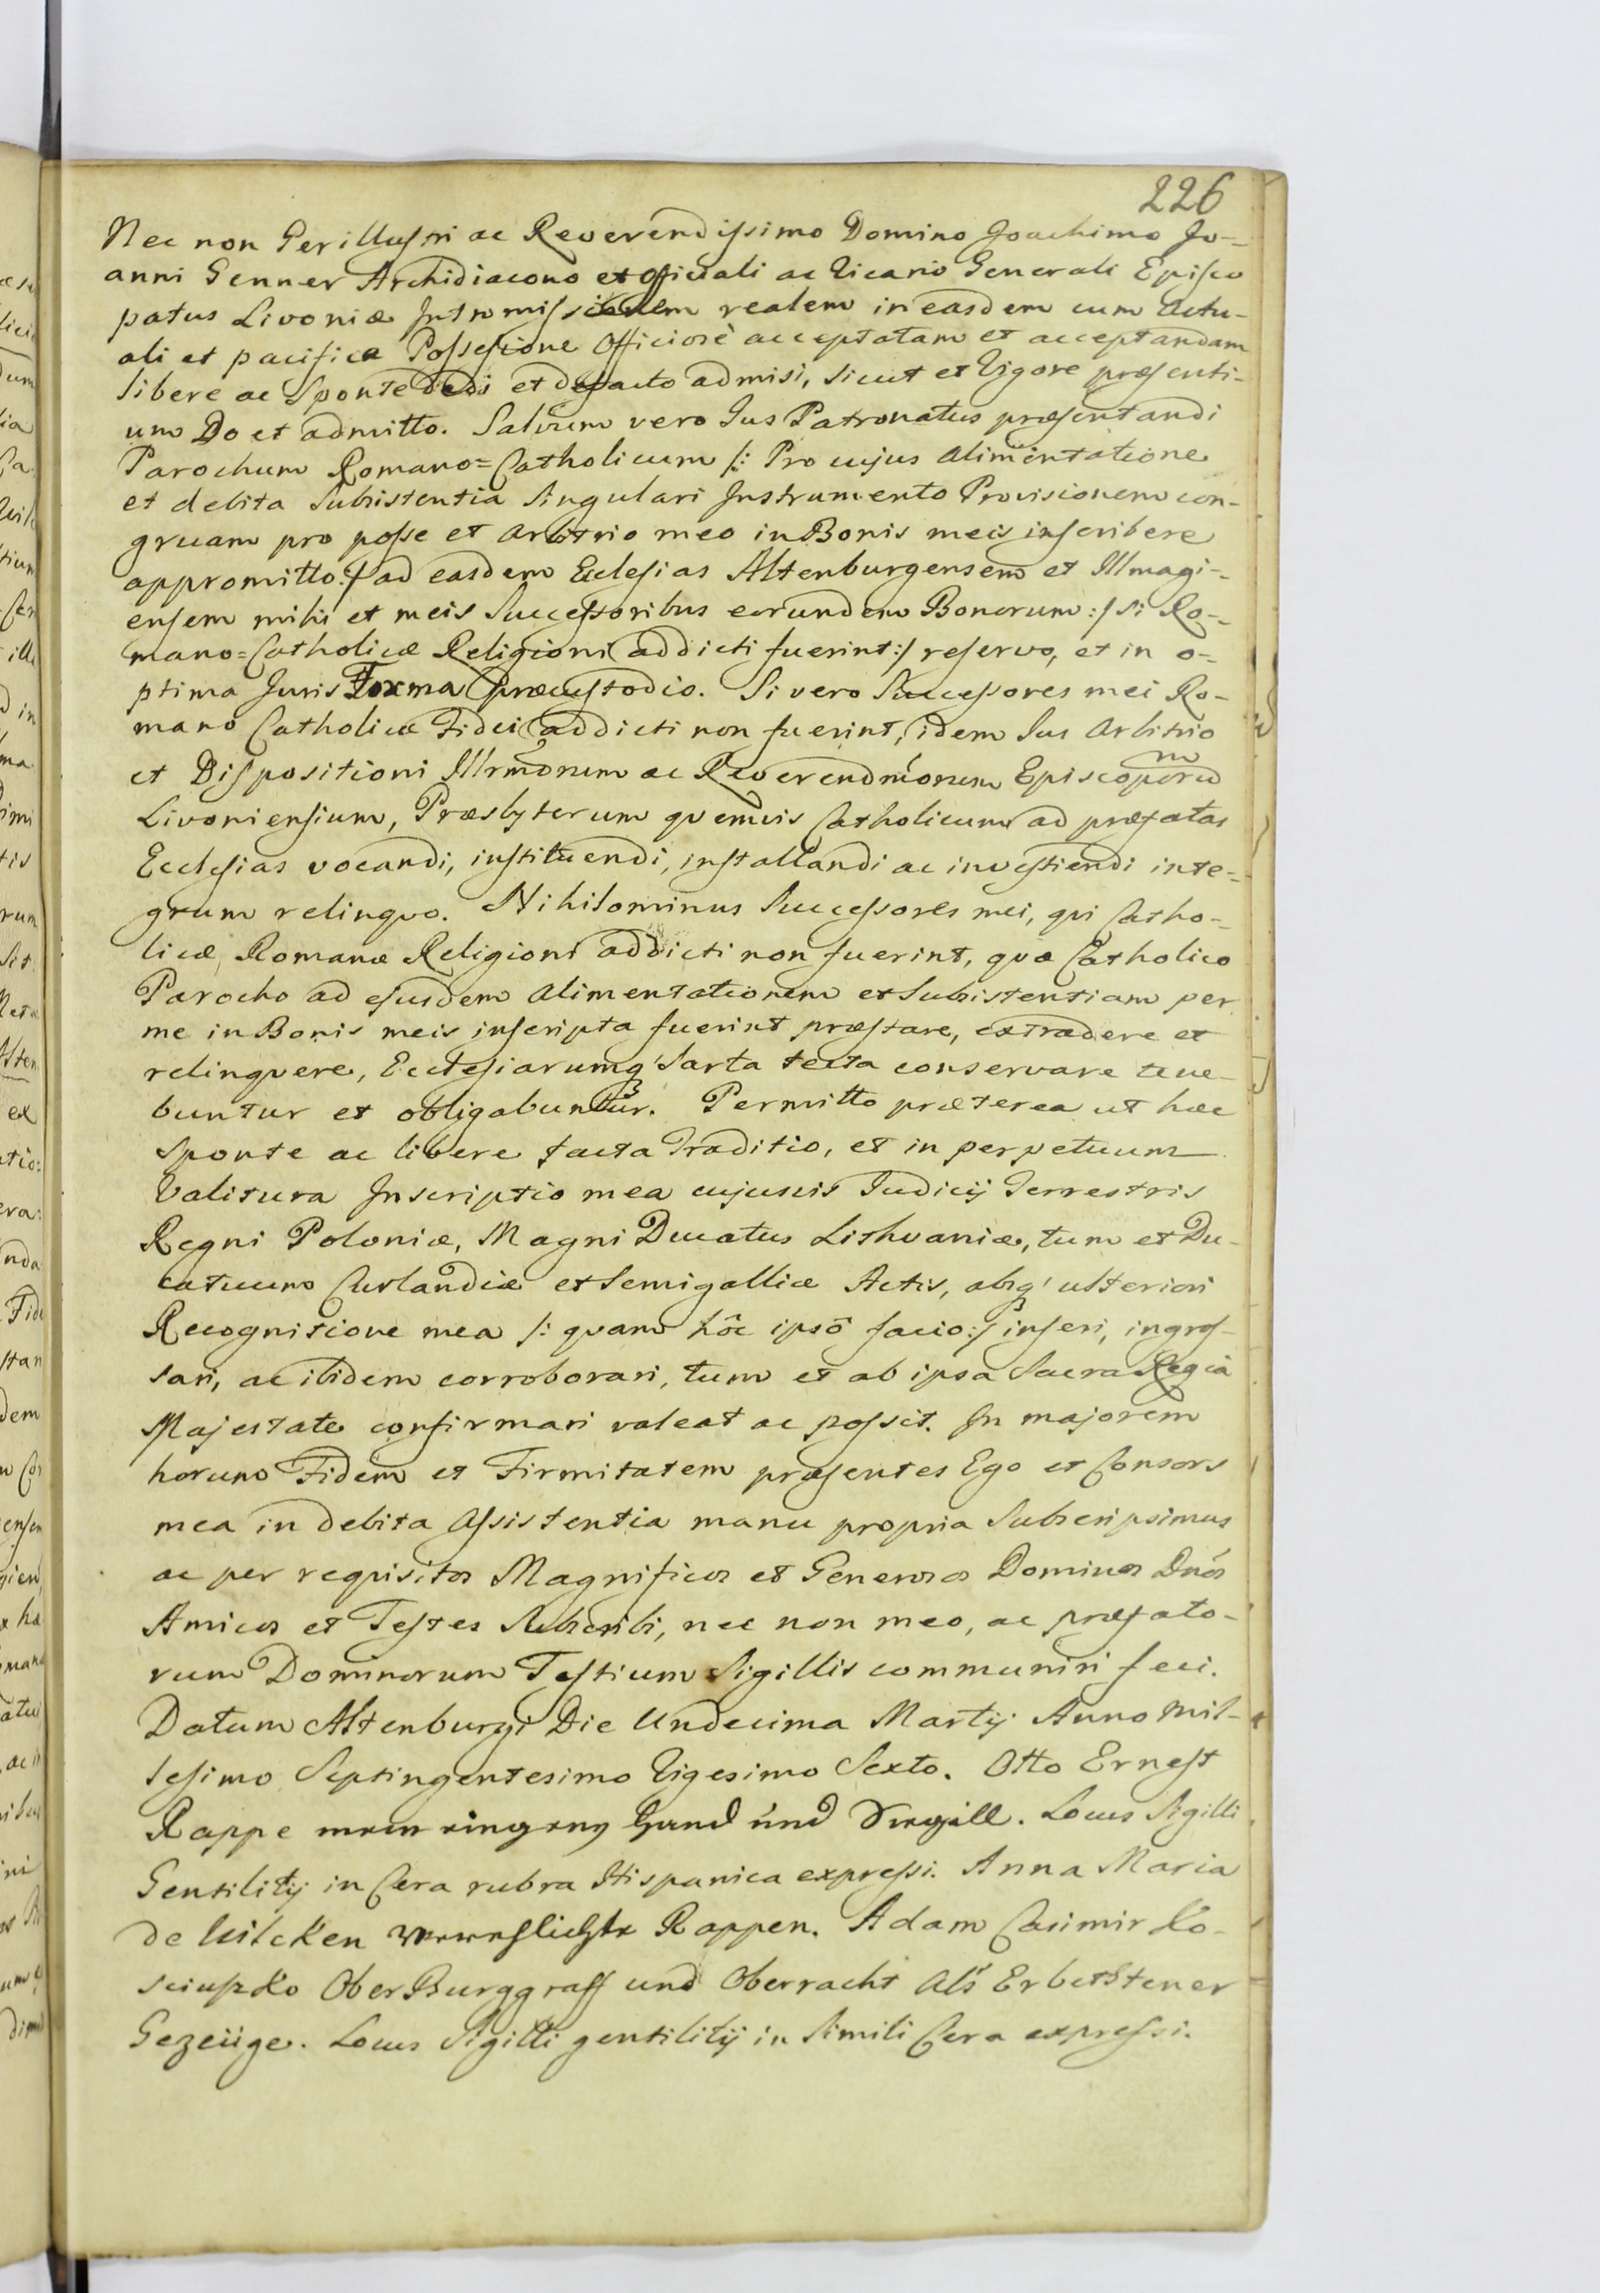 226
Nec non Perillustri ac Reverendissimo Domino Joachimo Jo-
anni Genner Archidiacono et Officiali ac Vicario Generali Episco
patus Livoniæ Intromissionem realem in easdem cum Actu-
ali et pacifica Possessione Officiosè acceptatam et acceptandam
libere ac Sponte dedi et defacto admisi, sicut et Vigore præsenti-
um Do et admitto. Salvum vero Jus Patronatus præsentandi
Parochum Romano=Catholicum /: Pro cujus Alimentatione
et debita Subsistentia Singulari Instrumento Provisionem con-
gruam pro posse et Arbitrio meo in Bonis meis inscribere
appromitto :/ ad easdem Ecclesias Altenburgensem et Illmagi-
ensem mihi et meis Successoribus eorundem Bonorum :/ si Ro-
mano=Catholicæ Religioni addicti fuerint :/ reservo, et in o-
ptima Juris Forma præcustodio. Si vero Successores mei Ro-
mano Catholicæ Fidei addicti non fuerint, idem Jus Arbitrio
et Dispositioni Illrmorum ac Reverendmorum Episcoporum
Livoniensium, Præsbyterum quemvis Catholicum ad præfatas
Ecclesias vocandi, instituendi, installandi ac investiendi inte-
grum relinquo. Nihilominus Successores mei, qui Catho-
licæ Romanæ Religioni addicti non fuerint, quæ Catholico
Parocho ad ejusdem Alimentationem et Subsistentiam per
me in Bonis meis inscripta fuerint præstare, extradere et
relinquere, Ecclesiarumq' Sarta tecta conservare tene-
buntur et obligabuntur. Permitto præterea ut hæc
Sponte ac libere facta Traditio, et in perpetuum
Valitura Inscriptio mea cujusvis Judicij Terrestris
Regni Poloniæ, Magni Ducatus Lithvaniæ, tum et Du-
catuum Curlandiæ et Semigalliæ Actis, absq' ulteriori
Recognitione mea /: quam hôc ipsô facio :/ inseri, ingros-
sari, ac ibidem corroborari, tum et ab ipsa Sacra Regia
Majestate confirmari valeat ac possit. In majorem
horum Fidem et Firmitatem præsentes Ego et Consors
mea in debita Assistentia manu propria Subscripsimus
ac per requisitos Magnificos et Generosos Dominos Dnós
Amicos et Testes Subscribi, nec non meo, ac præfato-
rum Dominorum Testium Sigillis communiri feci.
Datum Altenburgi Die Undecima Martij Anno Mil-
lesimo Septingentesimo Vigesimo Sexto. Otto Ernest
Rappe mein eingeny Hand und Siegill. Locus Sigilli
Gentilitij in Cera rubra Hispanica expressi. Anna Maria
de Wilcken Rappen. Adam Casimir Ko-
sciuszko OberBurggraff und Oberracht Als Erbettener
Gezeüge. Locus Sigilli gentilitij in Simili Cera expressi.